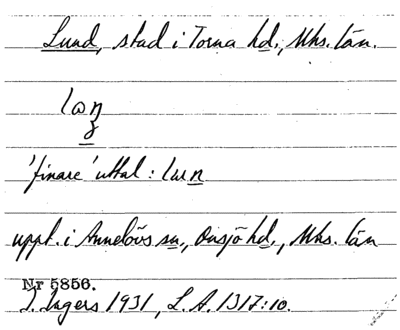 Lund, stad i Torna hd., Mhs. län.
'finare' uttal:
uppt. i Annelövs sn., Onsjö hd., Mhs. län
Nr 5856.
I. Ingers 1931, L.A. 1317:10.